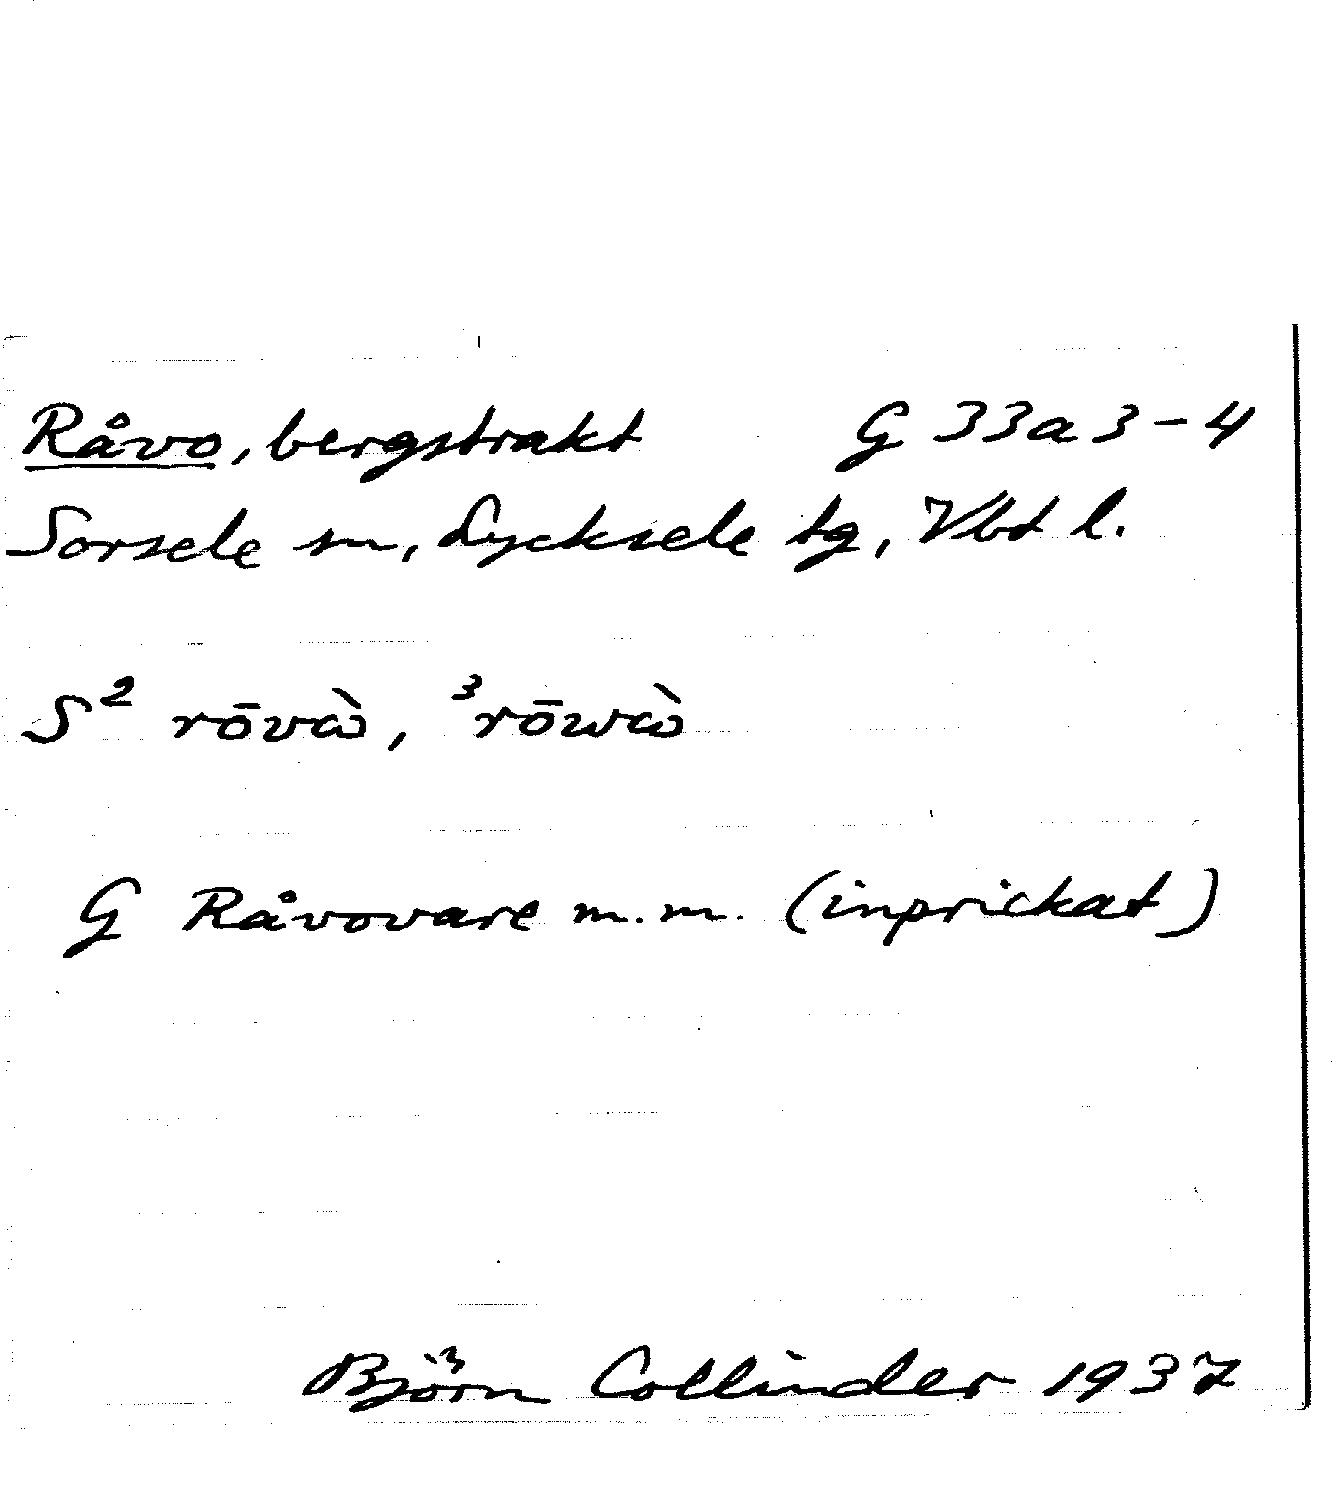 Råvo, bergstrakt G 33a3-4
Sorsele sn, Lycksele tg, Vbt l.
S² rōvɷ̀, ³rōwɷ̀
G Råvovare m.m. (inprickat)
Björn Collinder 1937